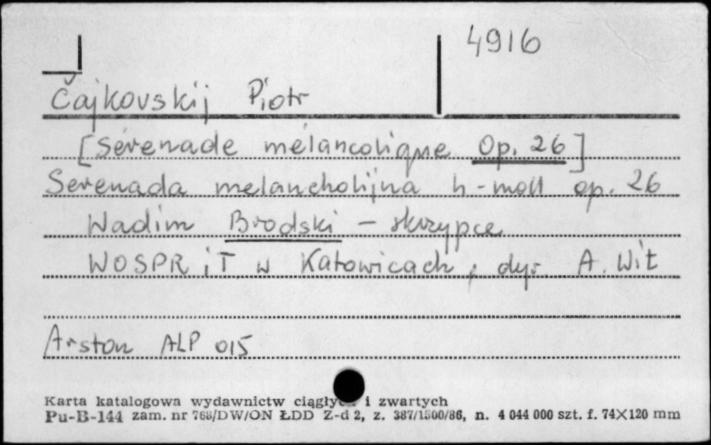 4916
Čajkovskij Piotr
[Sérénade mélancolique Op. 26]
Serenada melancholijna h-moll op. 26
Wadim Brodski – skrzypce
WOSPR i T w Katowicach, dyr A. Wit
Arston ALP 015
Karta katalogowa wydawnictw ciągłych i zwartych
Pu-B-144 zam. nr 768/DW/ON ŁDD Z-d 2, z. 387/1500/86, n. 4 044 000 szt. f. 74×120 mm